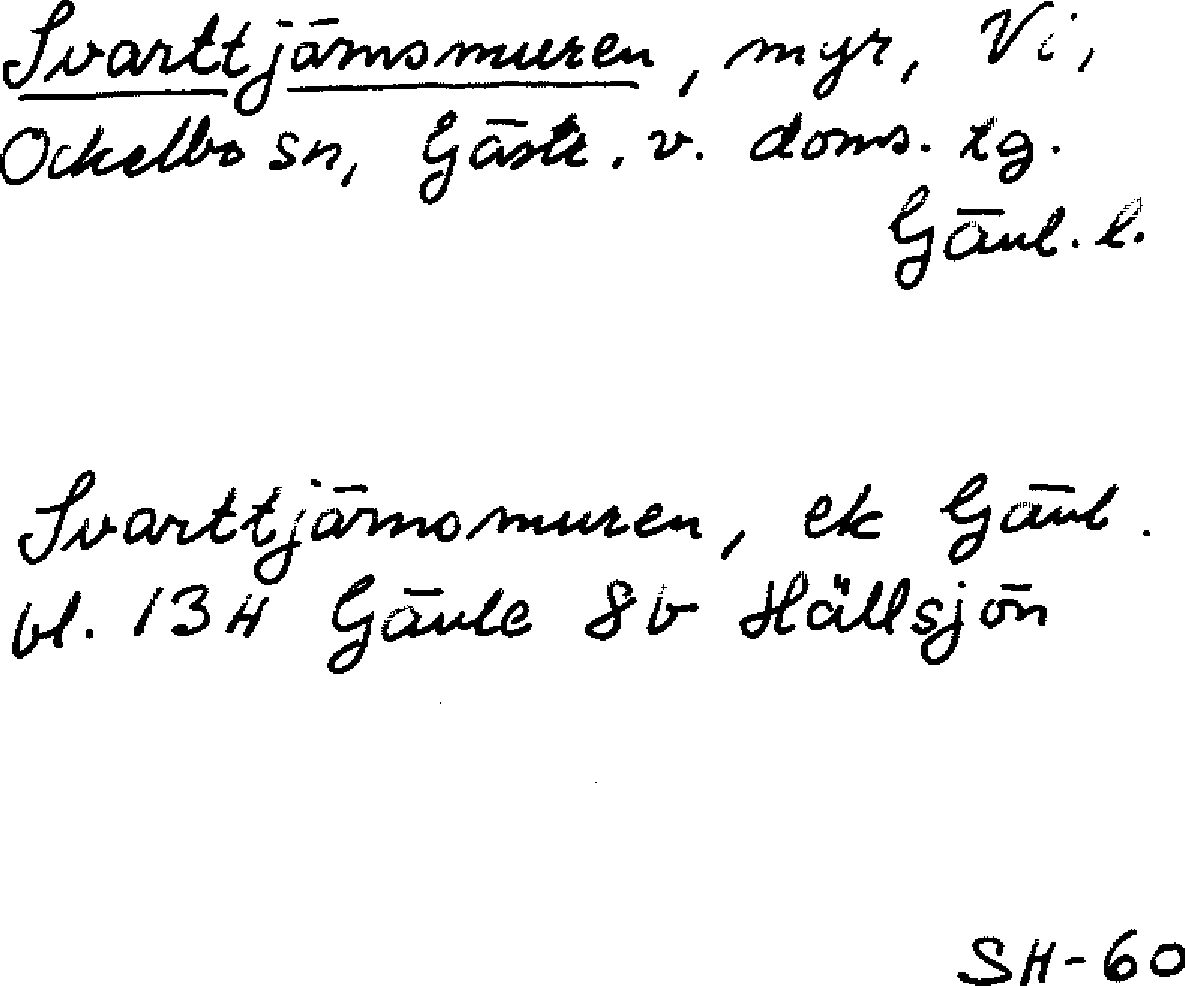 Svarttjärnsmuren, myr, Vi,
Ockelbo sn, Gästr. v. doms. tg.
Gävl. l.
Svarttjärnsmuren, ek Gävl.
bl. 134 Gävle 8b Hällsjön
SH-60